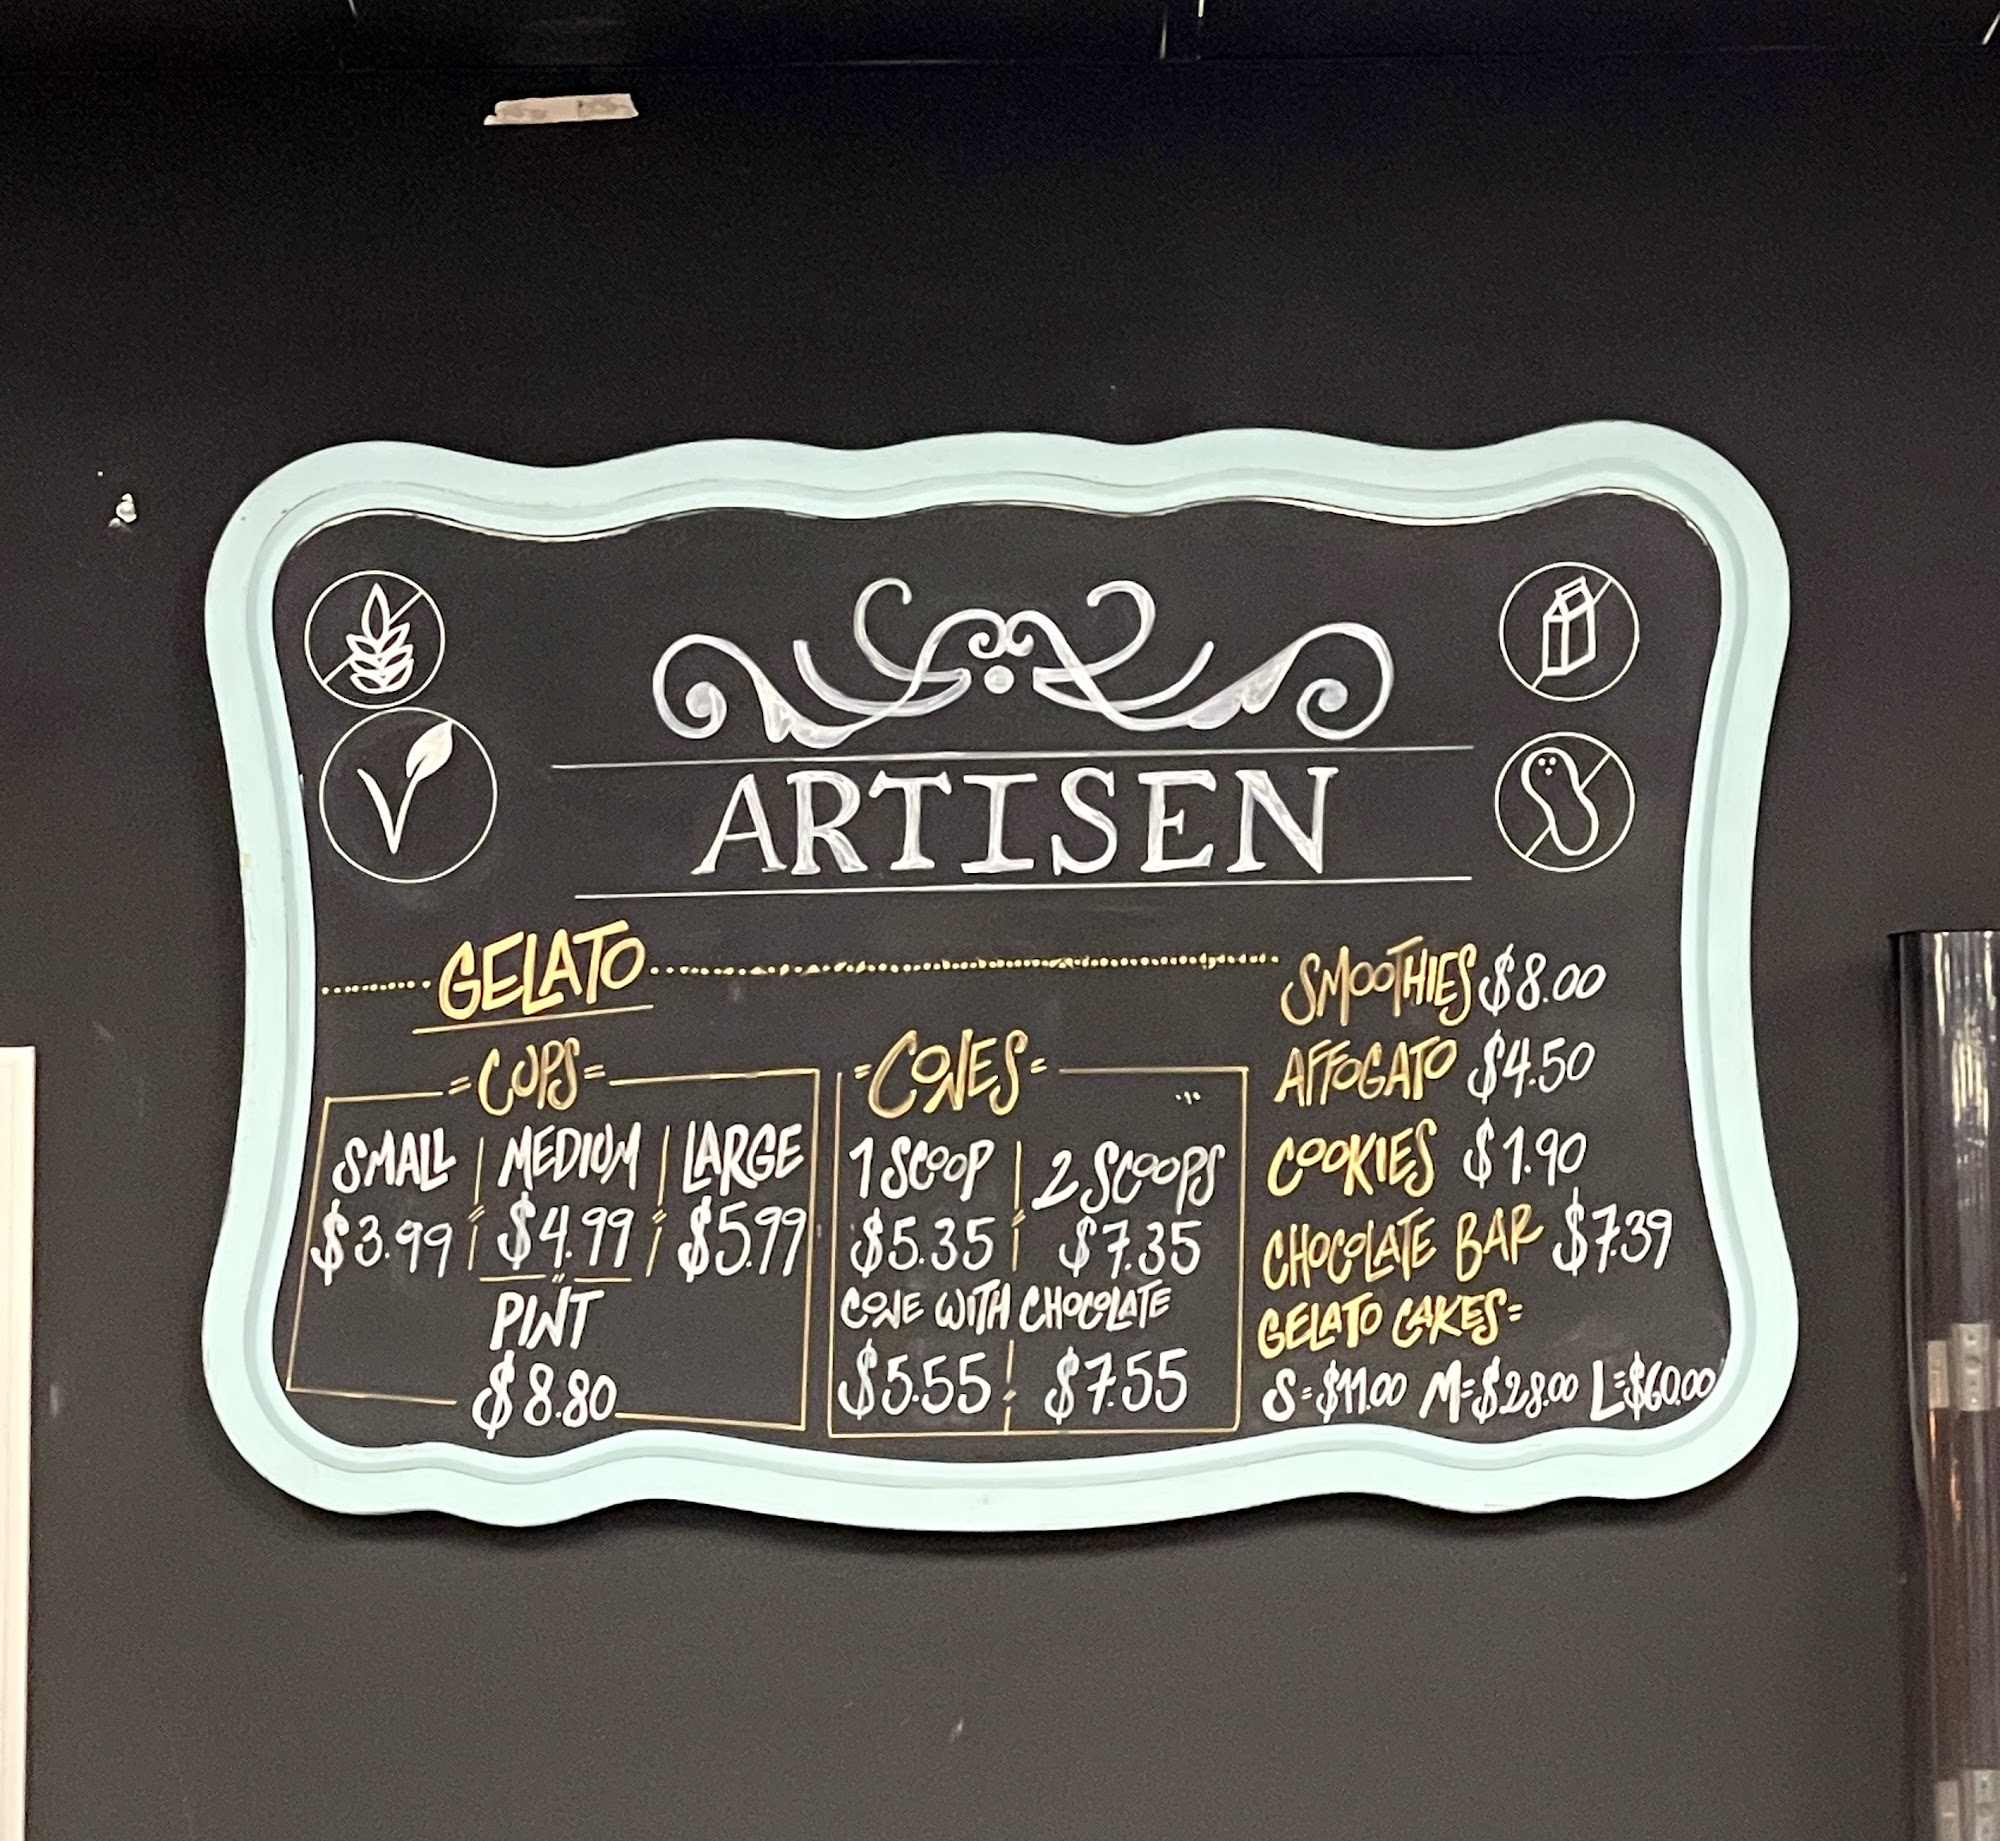 ARTISEN
GELATO
CUPS
SMALL MEDIUM LARGE
$3.99 $4.99 $5.99
PINT
$8.80
CONES
1 SCOOP 2 SCOOPS
$5.35 $7.35
CONE WITH CHOCOLATE
$5.55 $7.55
SMOOTHIES $8.00
AFFOGATO $4.50
COOKIES $1.90
CHOCOLATE BAR $7.39
GELATO CAKES=
S=$11.00 M=$28.00 L=$60.00